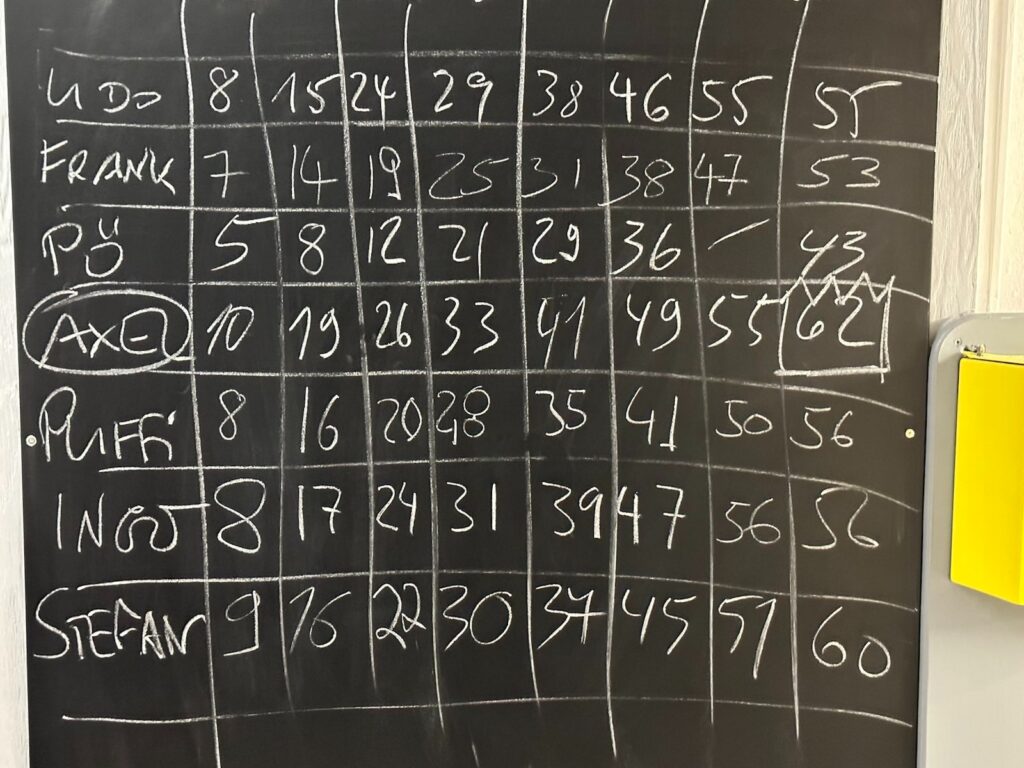 UDO 8 15 24 29 38 46 55 55
FRANK 7 14 19 25 31 38 47 53
PÜ 5 8 12 21 29 36 / 43
AXEL 10 19 26 33 41 49 55 62
PUFFI 8 16 20 28 35 41 50 56
INGO 8 17 24 31 39 47 56 56
STEFAN 9 16 22 30 37 45 51 60